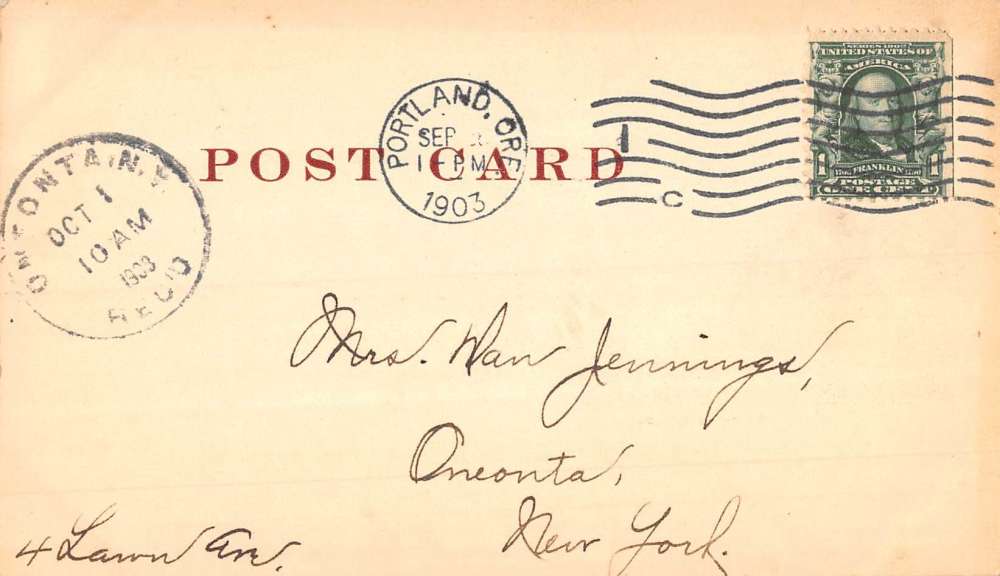 SERIES 1902
UNITED STATES OF
AMERICA
FRANKLIN
POSTAGE
1 ONE CENT 1
PORTLAND, ORE.
SEP
1 - PM
1903
1
C
POST CARD
ONEONTA, N.Y.
OCT 1
10 AM
1903
REC'D
Mrs. Wan Jennings,
Oneonta,
New York.
4 Lawn Ave.